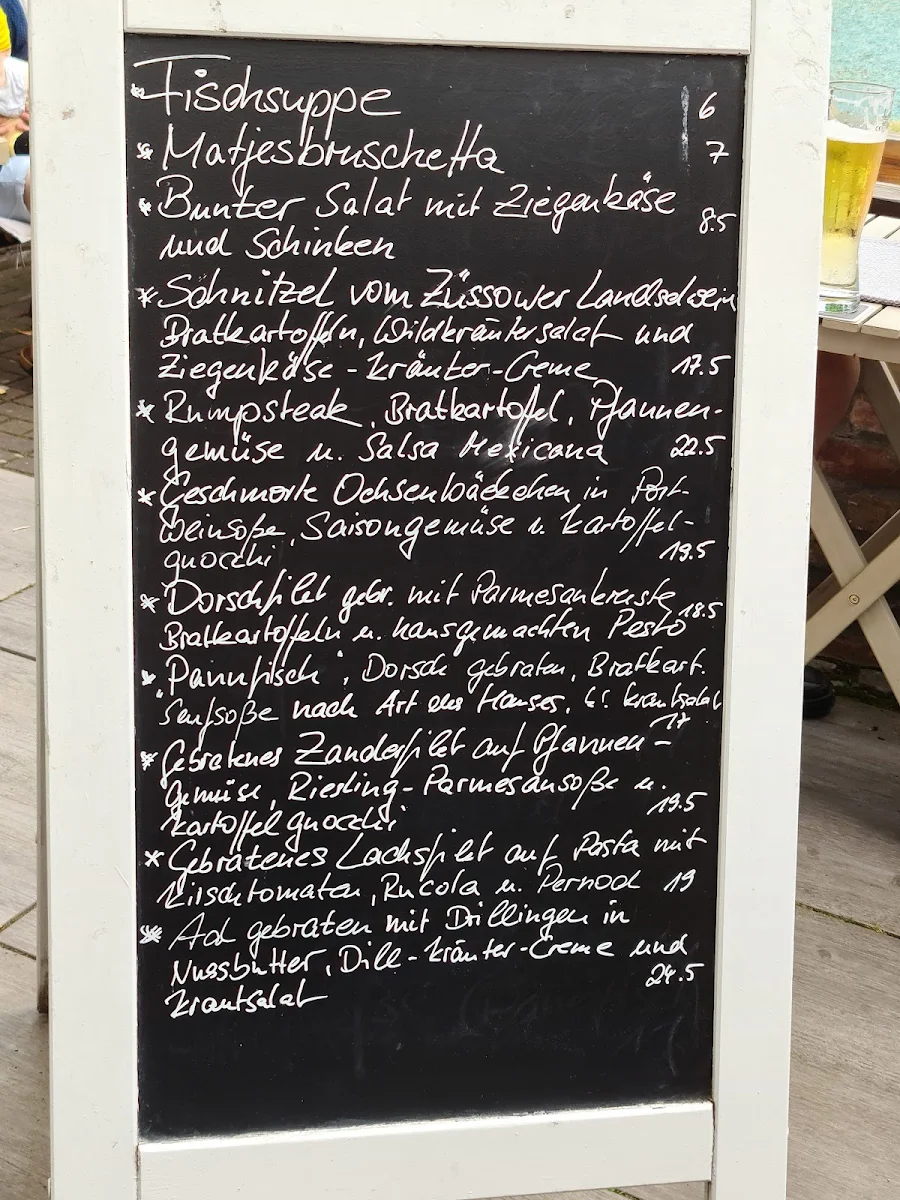 * Fischsuppe 6
* Matjesbruschetta 7
* Bunter Salat mit Ziegenkäse
und Schinken 8.5
* Schnitzel vom Züssower Landschwein
Bratkartoffeln, Wildkräutersalat und
Ziegenkäse-Kräuter-Creme 17.5
* Rumpsteak, Bratkartoffel, Pfannen-
gemüse u. Salsa Mexicana 22.5
* Geschmorte Ochsenbäckchen in Port-
weinsoße, Saisongemüse u. Kartoffel-
gnocchi 19.5
* Dorschfilet gebr. mit Parmesankruste
Bratkartoffeln u. hausgemachten Pesto 18.5
* "Pannfisch", Dorsch gebraten, Bratkart.
Senfsoße nach Art des Hauses, kl. Krautsalat
17
* Gebratenes Zanderfilet auf Pfannen-
gemüse, Riesling-Parmesansoße u.
Kartoffelgnocchi 19.5
* Gebratenes Lachsfilet auf Pasta mit
Kirschtomaten, Rucola u. Pernod 19
* Aal gebraten mit Drillingen in
Nussbutter, Dill-Kräuter-Creme und
Krautsalat 24.5